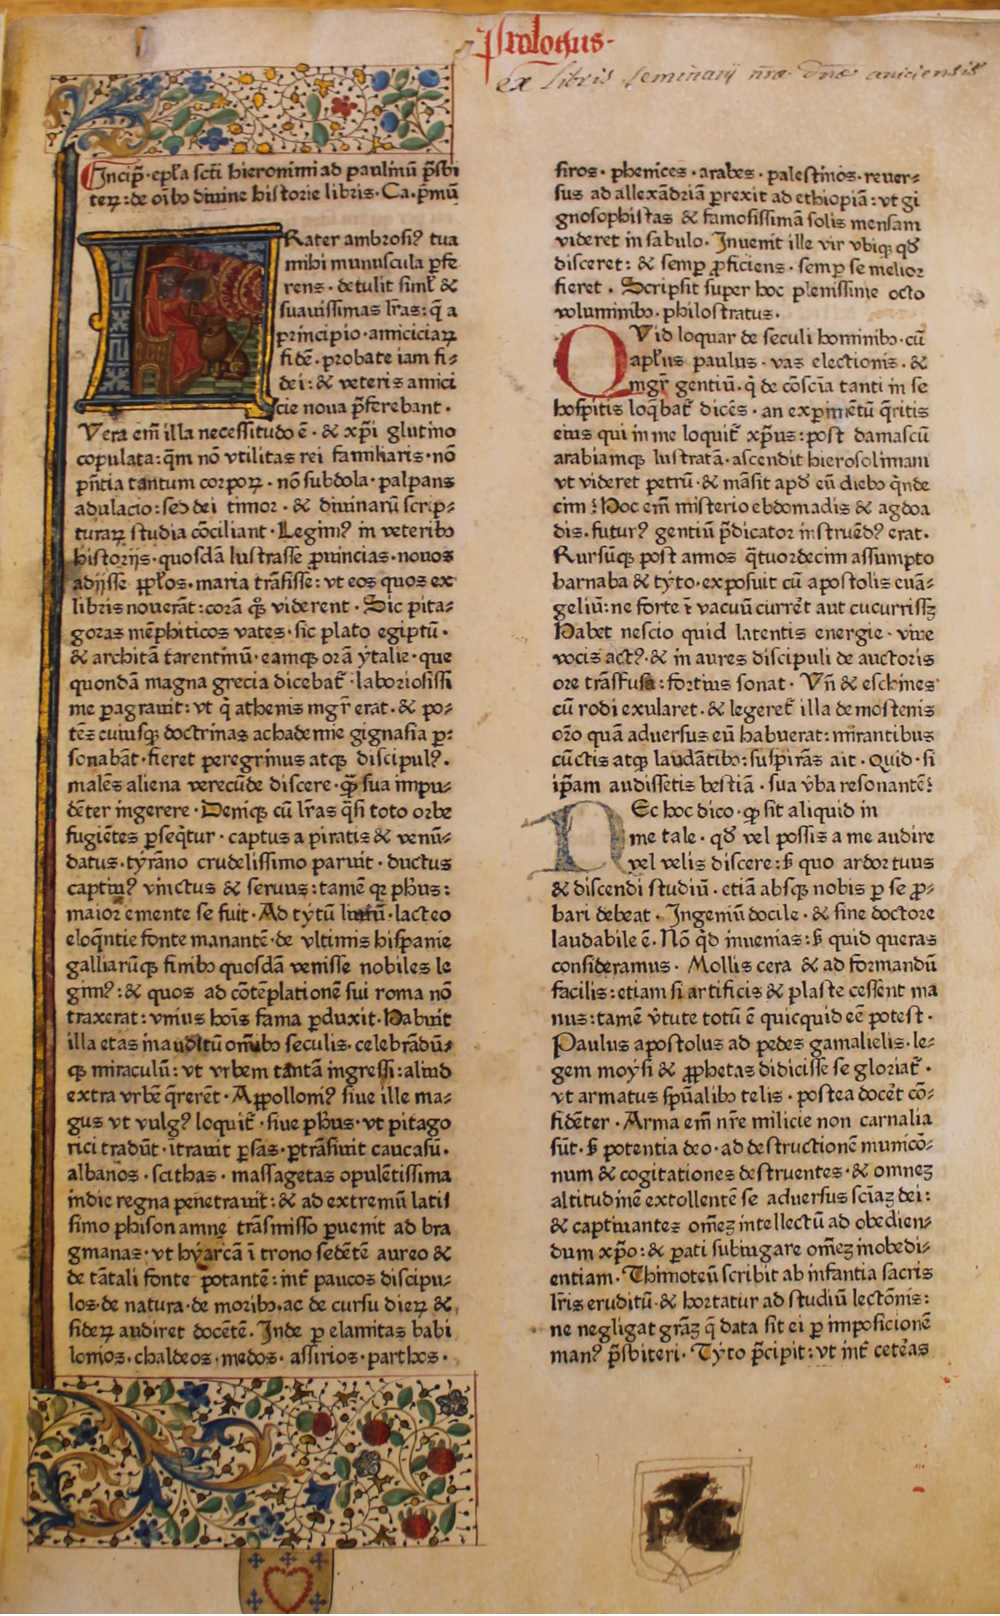 Prologus·
ex libris seminarij nr̄æ dn̄æ aniciensis
Incip̄·ep̄la scti hieronimi ad paulinū p̄sbi
teꝝ: de oībꝰ diuine historie libris· Ca· p̄mū
FRater ambrosiꝰ tua
mihi munuscula ꝑfe
rens· detulit siml̄ &
suauissimas lr̄as: q̄ a
principio·amiciciaꝝ
fidē·probate iam fi⸗
dei: & veteris amici
cie noua p̄ferebant·
Vera em̄ illa necessitudo ē·& xp̄i glutino
copulata: qm̄ nō vtilitas rei familiaris·nō
p̄ntia tantum corpoꝝ·nō subdola·palpans
adulacio: sed dei timor·& diuinarū scrip⸗
turaꝝ studia cōciliant·Legimꝰ in veteribꝰ
historijs·quosdā lustrasse ꝓuincias·nouos
adijsse pp̄los·maria trāsisse: vt eos quos ex
libris nouerāt: corā qꝫ viderent·Sic pita⸗
goras mēphiticos vates·sic plato egiptū·
& architā tarentinū·eamqꝫ orā ytalie·que
quondā magna grecia dicebat᷑·laboriosissi
me ꝑagrauit: vt q̄ athenis mgr̄ erat·& po⸗
tēs cuiusqꝫ doctrinas achademie gignasia ꝑ⸗
sonabāt·fieret peregrinus atqꝫ discipulꝰ·
malēs aliena verecūde discere·qꝫ sua impu⸗
dēter ingerere·Deniqꝫ cū lr̄as q̄si toto orbe
fugiētes ꝑseq̄tur·captus a piratis & venū⸗
datus·tyrāno crudelissimo paruit·ductus
captiuꝰ vinctus & seruus: tamē qꝛ ph̄us:
maior emente se fuit·Ad tytū liuiū·lacteo
eloq̄ntie fonte manantē·de vltimis hispanie
galliarūqꝫ finibꝰ quosdā venisse nobiles le
gimꝰ: & quos ad cōtēplationē sui roma nō
traxerat: vnius hoīs fama ꝑduxit·Habuit
illa etas inauditū omībꝰ seculis·celebrādū⸗
qꝫ miraculū: vt vrbem tantā ingressi: aliud
extra vrbē q̄rerēt·Appollonꝰ siue ille ma⸗
gus vt vulgꝰ loquit᷑·siue ph̄us·vt pitago
rici tradūt·itrauit ꝑsas·ꝑtrāsiuit caucasū·
albanos·scithas·massagetas opulētissima
indie regna penetrauit: & ad extremū latis
simo phison amne trāsmisso ꝑuenit ad bra
gmanas·vt hyarcā ī trono sedētē aureo &
de tātali fonte potantē: int᷑ paucos discipu⸗
los·de natura·de moribꝰ·ac de cursu dieꝝ &
sideꝝ audiret docētē·Inde ꝑ elamitas babi
lonios·chaldeos·medos·assirios·parthos·
siros·phenices·arabes·palestinos·reuer⸗
sus ad allexādriā ꝑrexit ad ethiopiā: vt gi
gnosophistas & famosissimā solis mensam
videret in sabulo·Inuenit ille vir vbiqꝫ qd̄
disceret: & semꝑ ꝓficiens·semꝑ se melior
fieret·Scripsit super hoc plenissime octo
voluminibꝰ·philostratus·
QVid loquar de seculi hominibꝰ·cū
apl̄us paulus·vas electionis·&
mgr̄ gentiū·q̄ de cōsciā tanti in se
hospitis loq̄bat᷑ dicēs·an exꝑimētū q̄ritis
eius qui in me loquit᷑ xp̄us: post damascū
arabiamqꝫ lustratā·ascendit hierosolimam
vt videret petrū·& māsit apd̄ eū diebꝰ q̄nde
cim: Hoc em̄ misterio ebdomadis & agdoa
dis·futurꝰ gentiū p̄dicator instruēdꝰ erat·
Rursūqꝫ post annos q̄tuordecim assumpto
barnaba & tyto·exposuit cū apostolis euā⸗
geliū: ne forte ī vacuū currēt aut cucurrissꝫ
Habet nescio quid latentis energie·viue
vocis actꝰ·& in aures discipuli de auctoris
ore trāsfusa: fortius sonat·Vn̄ & eschines
cū rodi exularet·& legeret᷑ illa demostenis
or̄o quā aduersus eū habuerat: mirantibus
cūctis atqꝫ laudātibꝰ: suspirās ait·Quid·si
ip̄am audissetis bestiā·sua v̄ba resonantē:
NEc hoc dico·qꝫ sit aliquid in
me tale·qd̄ vel possis a me audire
vel velis discere: sꝫ quo ardor tuus
& discendi studiū·etiā absqꝫ nobis ꝑ se ꝓ⸗
bari debeat·Ingeniū docile·& sine doctore
laudabile ē·Nō qd̄ inuenias: sꝫ quid queras
consideramus·Mollis cera & ad formandū
facilis: etiam si artificis & plaste cessent ma
nus: tamē v̄tute totū ē quicquid eē potest·
Paulus apostolus ad pedes gamalielis·le⸗
gem moysi & ꝓphetas didicisse se gloriat᷑·
vt armatus spūalibꝰ telis·postea docet cō⸗
fidēter·Arma em̄ nr̄e milicie non carnalia
sūt·sꝫ potentia deo·ad destructionē municō⸗
num & cogitationes destruentes·& omnes
altitudinē extollentē se aduersus sciāꝫ dei:
& captiuantes om̄eꝫ intellectū ad obedien⸗
dum xp̄o: & parati subiugare om̄eꝫ inobedi⸗
entiam·Thimoteū scribit ab infantia sacris
lr̄is eruditū·& hortatur ad studiū lectōnis:
ne negligat grāꝫ q̄ data sit ei ꝑ imposicionē
manꝰ p̄sbiteri·Tyto p̄cipit: vt int᷑ ceteras